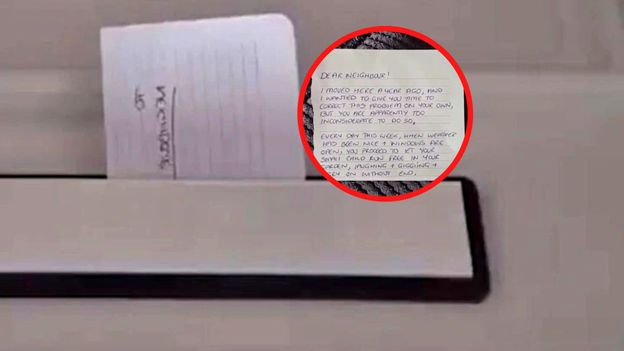 TO
DEAR NEIGHBOUR!
I MOVED HERE A YEAR AGO, AND
I WANTED TO GIVE YOU TIME TO
CORRECT THIS PROBLEM ON YOUR OWN,
BUT YOU ARE APPARENTLY TOO
INCONSIDERATE TO DO SO.
EVERY DAY THIS WEEK, WHEN WEATHER
HAS BEEN NICE + WINDOWS ARE
OPEN, YOU PROCEED TO LET YOUR
SMALL CHILD RUN FREE IN YOUR
GARDEN, LAUGHING + GIGGLING +
CARRY ON WITHOUT END.